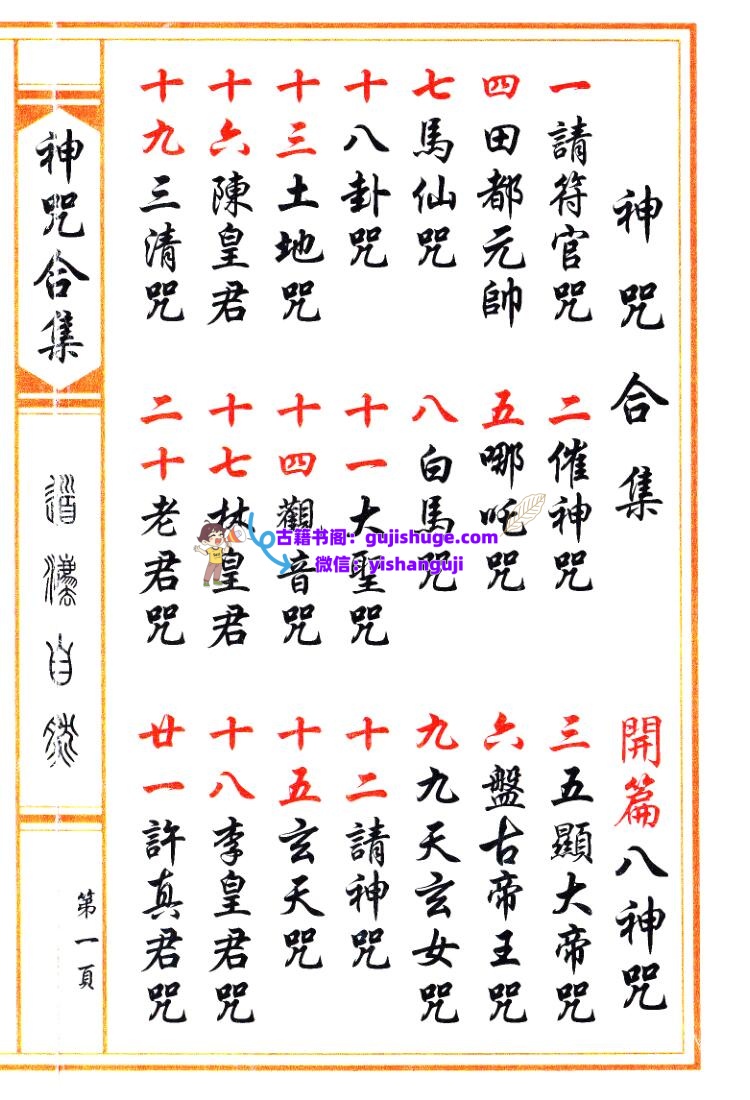 神咒合集 開篇八神咒
一請符官咒 二催神咒 三五顯大帝咒
四田都元帥 五哪吒咒 六盤古帝王咒
七馬仙咒 八白馬咒 九九天玄女咒
十八卦咒 十一大聖咒 十二請神咒
十三土地咒 十四觀音咒 十五玄天咒
十六陳皇君 十七林皇君 十八李皇君咒
十九三清咒 二十老君咒 廿一許真君咒
神咒合集
道法自然
第一頁
古籍书阁：gujishuge.com
微信：yishanguji